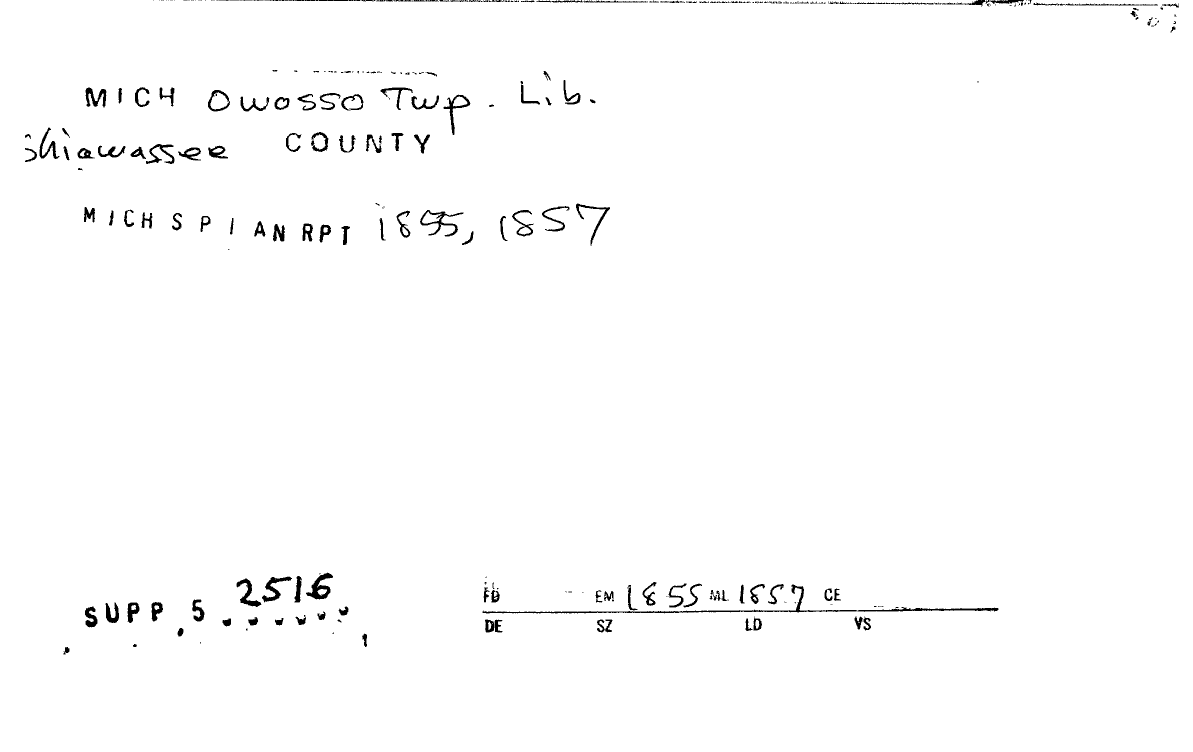 MICH Owosso Twp. Lib.
Shiawassee COUNTY
MICH S P I AN RPT 1855, 1857
SUPP.5 2516
FD EM 1855 ML 1857 CE
DE SZ LD VS